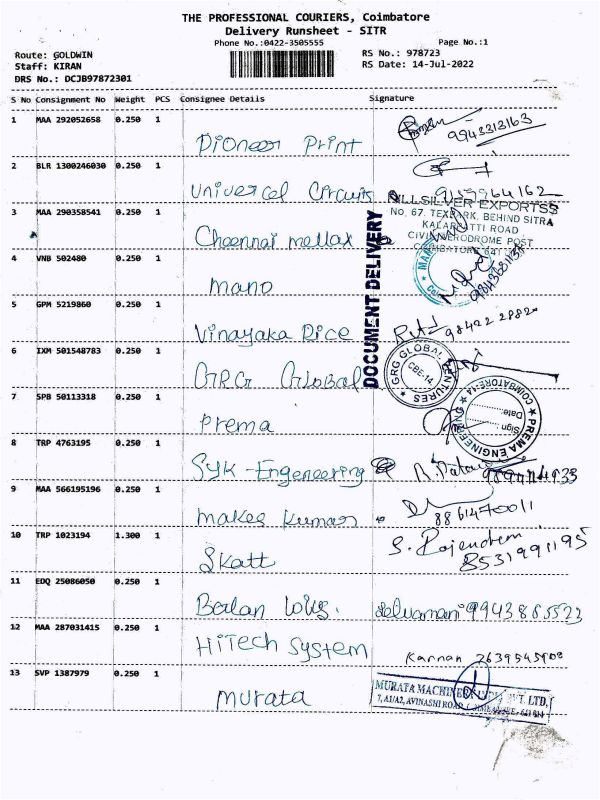 THE PROFESSIONAL COURIERS, Coimbatore
Delivery Runsheet - SITR
Phone No.:0422-3505555 Page No.:1
Route: GOLDWIN RS No.: 978723
Staff: KIRAN RS Date: 14-Jul-2022
DRS No.: DCJB97872301
S No Consignment No Weight PCS Consignee Details Signature
1 MAA 292052658 0.250 1
Pioneer Print 9943313163
2 BLR 1300246030 0.250 1
Univercel Circuits 9159964162
3 MAA 290358541 0.250 1
HILLSILVER EXPORTSS
NO, 67, TEXPARK, BEHIND SITRA
KALAPATTI ROAD
CIVIL AERODROME POST
COIMBATORE 641
Cheennai mellax
DOCUMENT DELIVERY
4 VNB 502480 0.250 1
mano
5 GPM 5219860 0.250 1
Vinayaka Rice 98422 29820
6 IXM 501548783 0.250 1
GRG Global
GRG GLOBAL VENTURES
CBE-14
7 SPB 50113318 0.250 1
Prema
PREMA ENGINEERING COIMBATORE-14
Date
Sign
8 TRP 4763195 0.250 1
SYK - Engeneering
9 MAA 566195196 0.250 1
makes kumar 8861470011
10 TRP 1023194 1.300 1
Skatt S. Rajendren 8531991195
11 EDQ 25086050 0.250 1
Selvamani 9943885523
12 MAA 287031415 0.250 1
HiTech System Kannan 2639545908
13 SVP 1387979 0.250 1
murata
MURATA MACHINERY INDIA PVT. LTD.
7, A1/A2, AVINASHI ROAD, COIMBATORE - 641 014